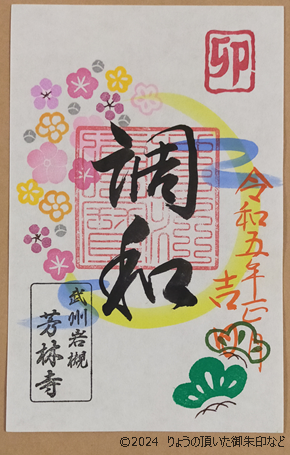 卯
調和
令和五年正月
吉日
武州岩槻
芳林寺
©2024 りょうの頂いた御朱印など